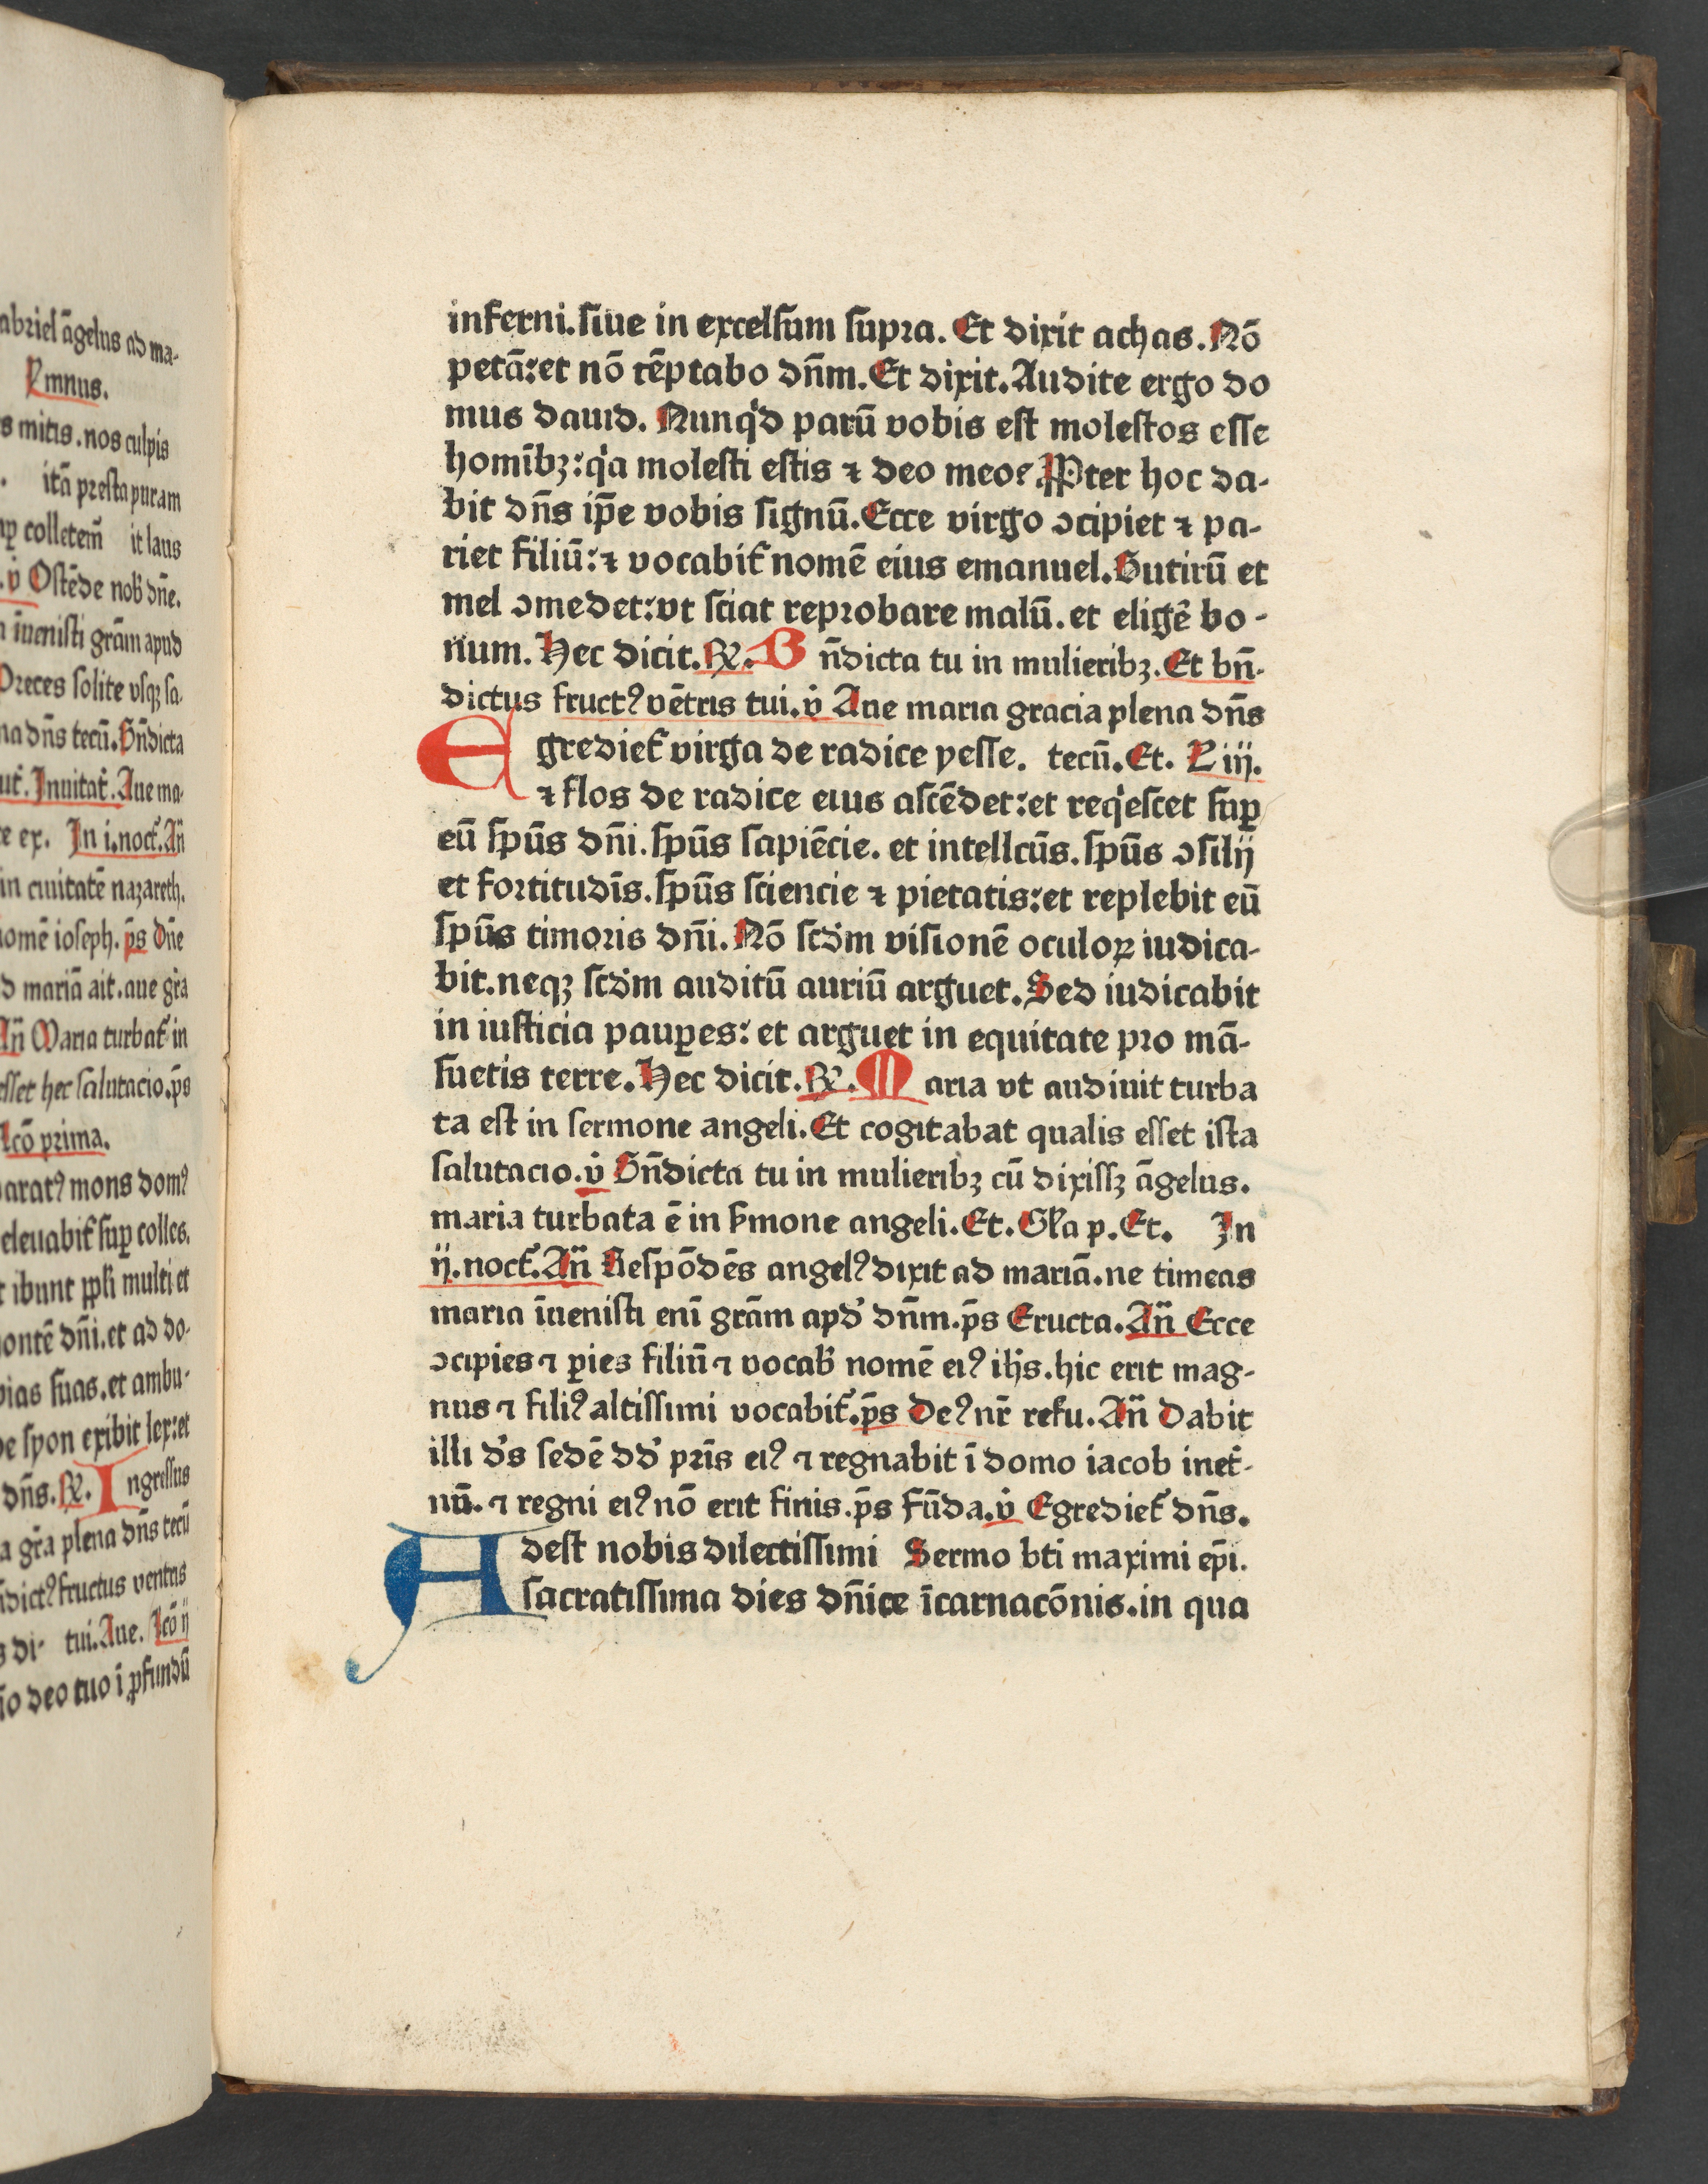 abriel āgelus ad ma-
Ymnus.
s mitis . nos culpis
itā presta puram
colletem̄ it laus
v̇ Ostēde nob̄ dn̄e.
īuenisti grām apud
Preces solite vsqꝫ sa-
na dn̄s tecū. Bn̄dicta
Inuitat᷑. Aue ma-
e ex. In i. noct᷑. An̄
in ciuitatē nazareth.
nomē ioseph. p̄s Dn̄e
d mariā ait. aue gr̄a
An̄ Maria turbat᷑ in
esset hec salutacio. p̄s
Lcō prima.
paratꝰ mons domꝰ
eleuabit᷑ suꝑ colles.
t ibunt ppl̄i multi et
montē dn̄i. et ad do-
vias suas. et ambu-
de syon exibit lex: et
dn̄s. ℞. Ingressus
a gr̄a plena dn̄s tecū
n̄dictꝰ fructus ventris
s di- tui. Aue. Lcō ij
n̄o deo tuo ī ꝓfundū
inferni. siue in excelsum supra. Et dixit achas. Nō
petā: et nō tēptabo dn̄m. Et dixit. Audite ergo do
mus dauid. Nunqͥd parū vobis est molestos esse
homībꝫ: qͥa molesti estis ⁊ deo meo? Ꝓpter hoc da-
bit dn̄s ip̄e vobis signū. Ecce virgo ꝯcipiet ⁊ pa-
riet filiū: ⁊ vocabit᷑ nomē eius emanuel. Butirū et
mel ꝯmedet: vt sciat reprobare malū. et eligē bo-
num. Hec dicit. ℞. Bn̄dicta tu in mulieribꝫ. Et bn̄-
dictus fructꝰ vētris tui. v̇ Aue maria gracia plena dn̄s
Egrediet᷑ virga de radice yesse. tecū. Et. L iij.
⁊ flos de radice eius ascēdet: et reqͥescet suꝑ
eū sp̄us dn̄i. sp̄us sapiēcie. et intellcūs. sp̄us ꝯsilij
et fortitudīs. sp̄us sciencie ⁊ pietatis: et replebit eū
sp̄us timoris dn̄i. Nō scd̄m visionē oculoꝝ iudica-
bit. neqꝫ scd̄m auditū auriū arguet. Sed iudicabit
in iusticia pauꝑes: et arguet in equitate pro mā-
suetis terre. Hec dicit. ℞. Maria vt audiuit turba
ta est in sermone angeli. Et cogitabat qualis esset ista
salutacio. v̇ Bn̄dicta tu in mulieribꝫ cū dixissꝫ āgelus.
maria turbata ē in s̄mone angeli. Et. Gl̄a p. Et. In
ij. noct᷑. An̄ Respōdēs angelꝰ dixit ad mariā. ne timeas
maria īuenisti enī grām apd̄ dn̄m. p̄s Eructa. An̄ Ecce
ꝯcipies ⁊ ꝑies filiū ⁊ vocab̄ nomē eiꝰ ih̄s. hic erit mag-
nus ⁊ filiꝰ altissimi vocabit᷑. p̄s Deꝰ nr̄ refu. An̄ Dabit
illi d̄s sedē dd̄ pr̄is eiꝰ ⁊ regnabit ī domo iacob inet̄-
nū. ⁊ regni eiꝰ nō erit finis. p̄s Fūda. v̇ Egrediet᷑ dn̄s.
Adest nobis dilectissimi Sermo bt̄i maximi ep̄i.
sacratissima dies dn̄ice īcarnacōnis. in qua